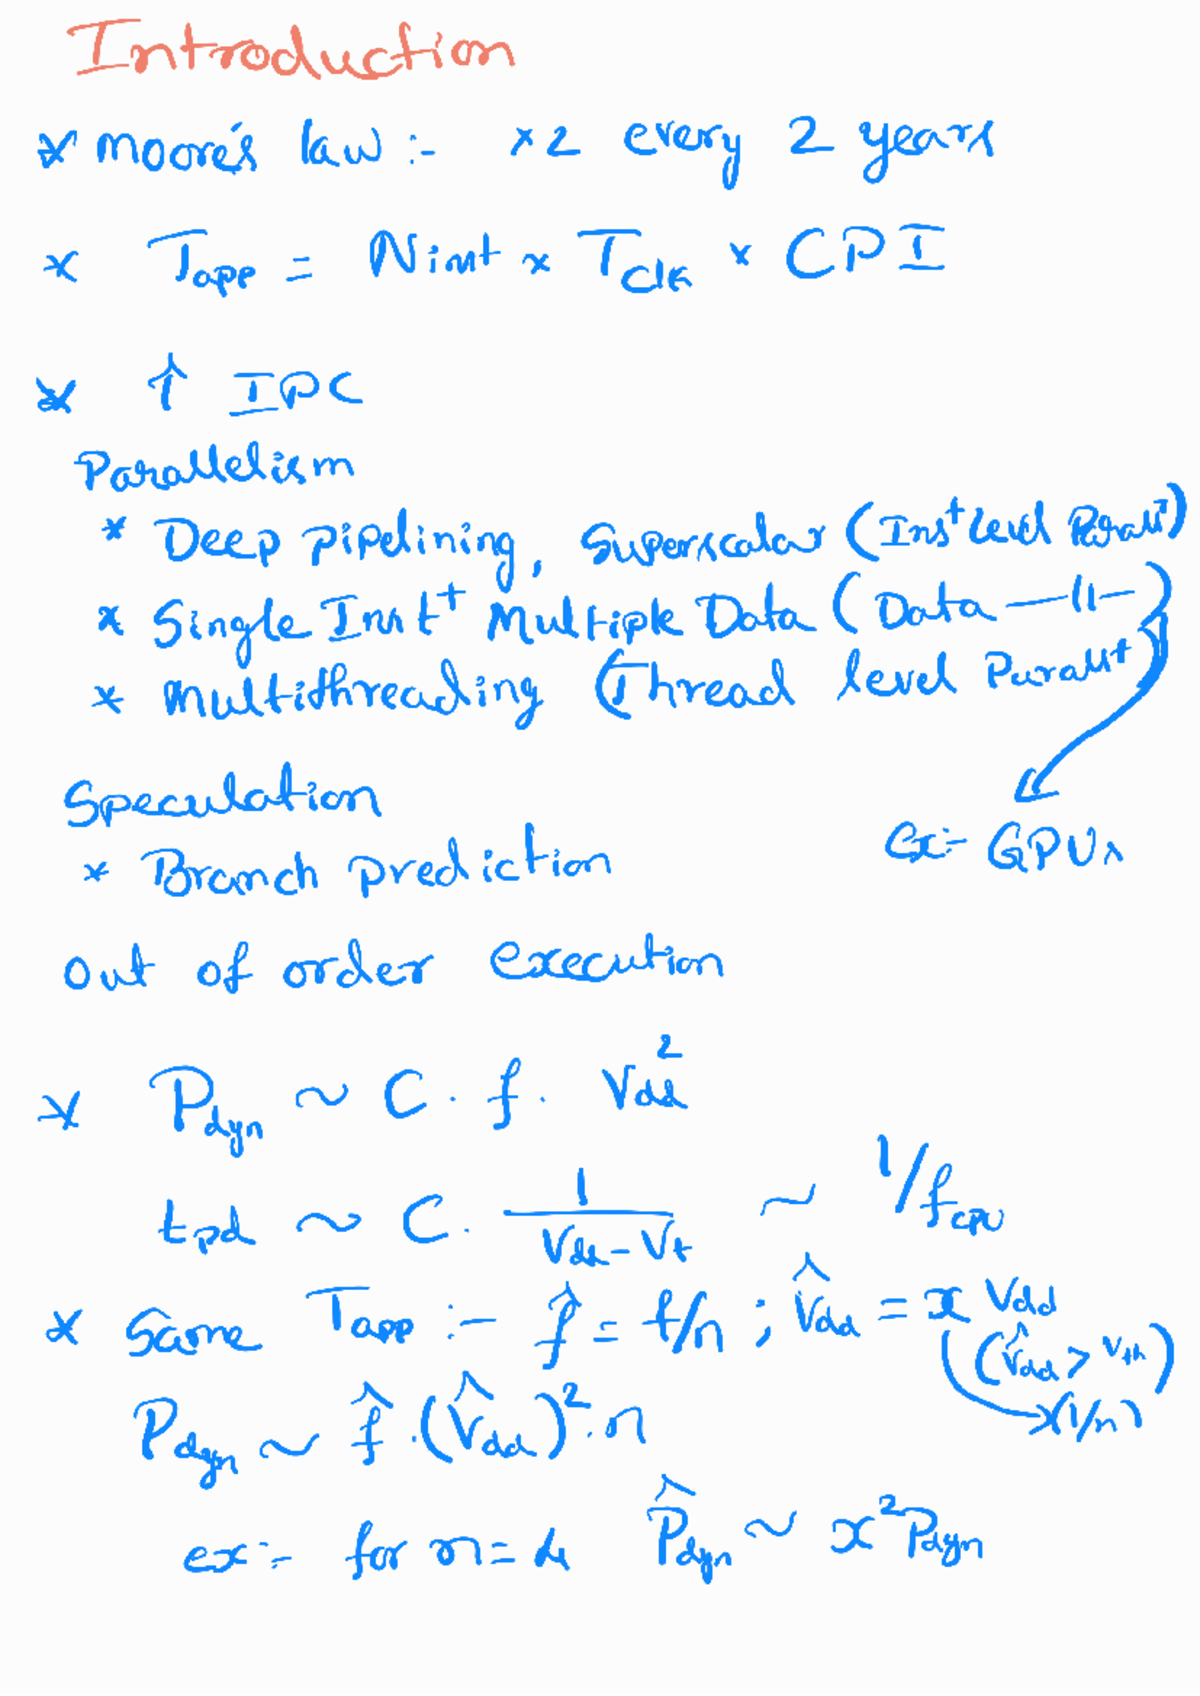 Introduction
* Moore's law :- ×2 every 2 years
* Tapp = Ninst × Tclk × CPI
* ↑ IPC
Parallelism
* Deep pipelining, Superscalar (Inst level Parall)
* Single Inst Multiple Data (Data —11—)
* Multithreading (Thread level Parall)
Speculation
* Branch prediction
ex:- GPUs
out of order execution
* Pdyn ~ C . f . Vdd²
tpd ~ C . 1/(Vdd - Vt) ~ 1/fcpu
* Same Tapp :- f̂ = f/n ; V̂dd = x Vdd
(V̂dd > Vth)
x(1/n)
Pdyn ~ f̂ . (V̂dd)² . n
ex:- for n = 4 P̂dyn ~ x² Pdyn